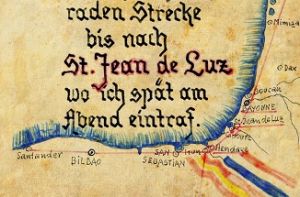 raden Strecke
bis nach
St. Jean de Luz
wo ich spät am
Abend eintraf.
Mimizan
Dax
Boucau
BAYONNE
St Jean de Luz
Hendaye
Irun
SAN SEBASTIAN
BILBAO
Santander